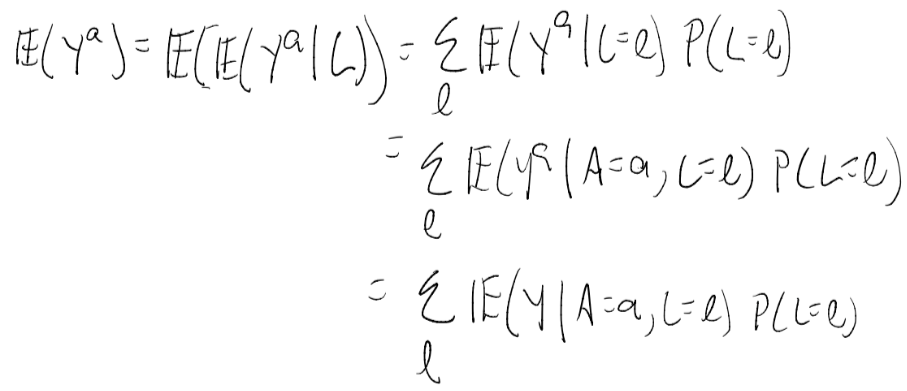 𝔼(Yᵃ) = 𝔼(𝔼(Yᵃ|L)) = ∑_ℓ 𝔼(Yᵃ|L=ℓ) P(L=ℓ)
= ∑_ℓ 𝔼(Yᵃ|A=a, L=ℓ) P(L=ℓ)
= ∑_ℓ 𝔼(Y|A=a, L=ℓ) P(L=ℓ)